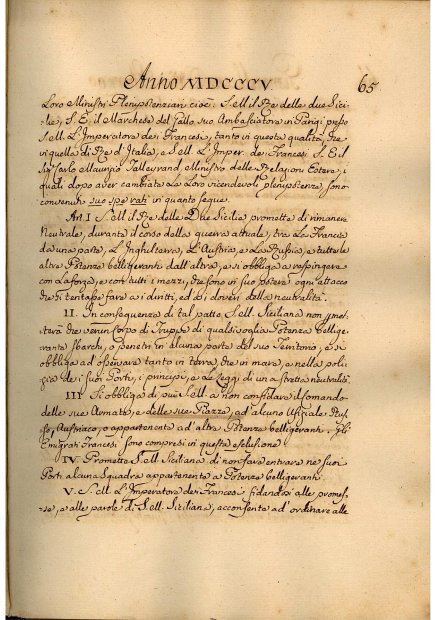 Anno MDCCCV. 65
Loro Ministri Plenipotenziari cioè: S. M. il Re delle due Sici-
lie, S. E. il Marchese del Gallo, suo Ambasciatore in Parigi presso
S. M. L'Imperatore de' Francesi, tanto in questa qualità, che
in quella di Re d'Italia, e S. M. L'Imper. de' Francesi S. E. il
Sig. Carlo Maurizio Talleyrand, Ministro delle Relazioni Estere; i
quali dopo aver cambiata la Loro vicendevoli plenipotenze, sono
convenuti suo spe rati in quanto segue.
Art. I. S. M. il Re delle Due Sicilie promette di rimanere
Neutrale, durante il corso della guerra attuale, tra La Francia
da una parte, L'Inghilterra, L'Austria, e La Russia, e tutte le
altre Potenze belligeranti dall'altra, e si obbliga a respingere
con La forza, e con tutti i mezzi, che sono in suo potere ogni attacco
che si tentasse fare a i diritti, ed ai doveri della neutralità.
II. In conseguenza di tal patto S. M. Siciliana non per-
metterà che verun Corpo di Truppe di qualsivoglia Potenza bellige-
rante sbarchi, o penetri in alcuna parte del suo Territorio, e si
obbliga ad osservare tanto in terra, che in mare, e nella poli-
zia de' suoi Porti, i principj, e Le Leggi di una stretta neutralità.
III. Si obbliga di più S. M. a non confidare il comando
delle sue Armate, e delle sue Piazze, ad alcuno Uffiziale Rus-
so, Austriaco, o appartenente ad altre Potenze belligeranti. Gli
Emigrati Francesi sono compresi in questa esclusione
IV. Promette S. M. Siciliana di non fare entrare ne' suoi
Porti alcuna Squadra appartenente a Potenze belligeranti.
V. S. M. L'Imperatore de' Francesi fidandosi alle promes-
se, e alle parole di S. M. Siciliana, acconsente ad ordinare alle